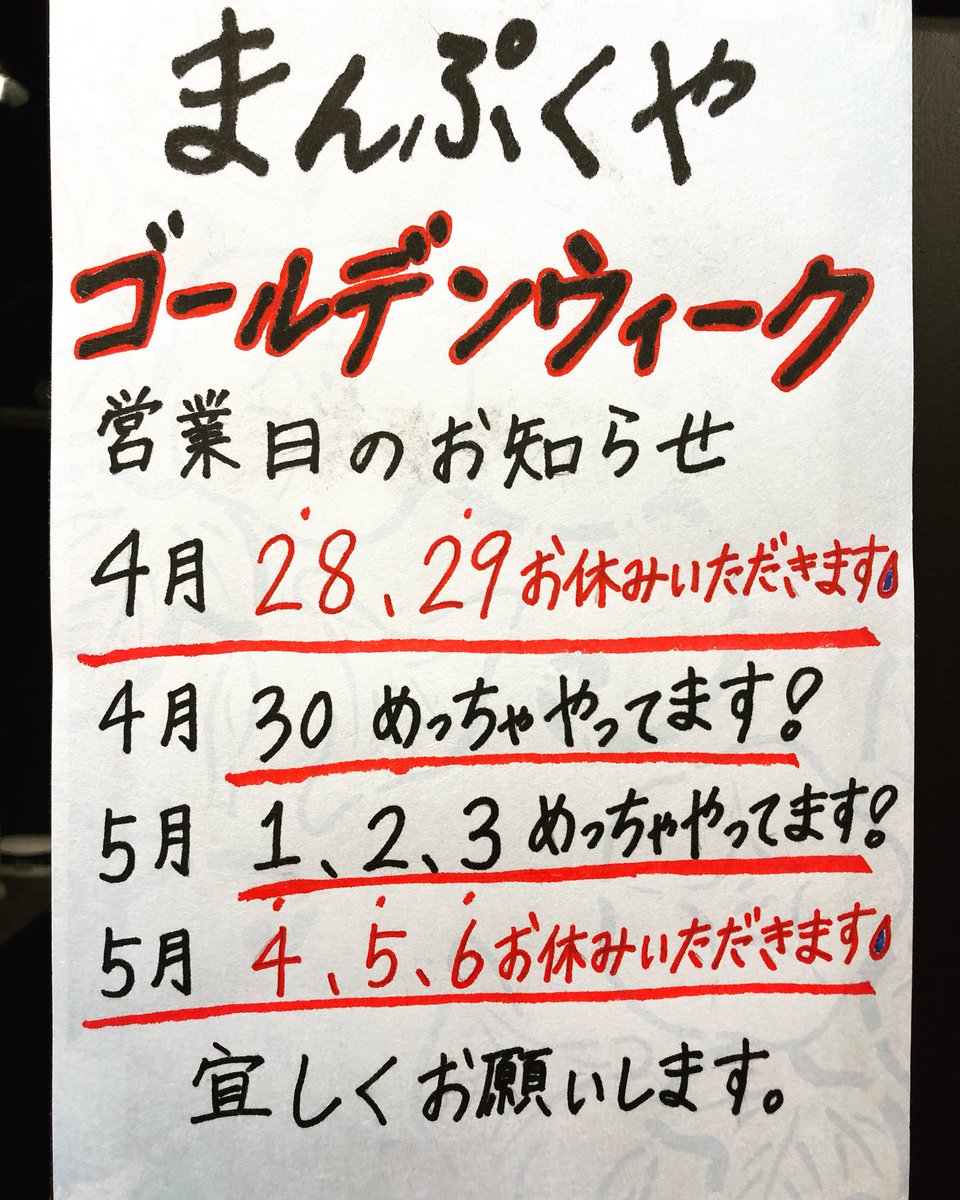 まんぷくや
ゴールデンウィーク
営業日のお知らせ
4月 28、29お休みいただきます
4月 30 めっちゃやってます!
5月 1、2、3 めっちゃやってます!
5月 4、5、6お休みいただきます
宜しくお願いします。